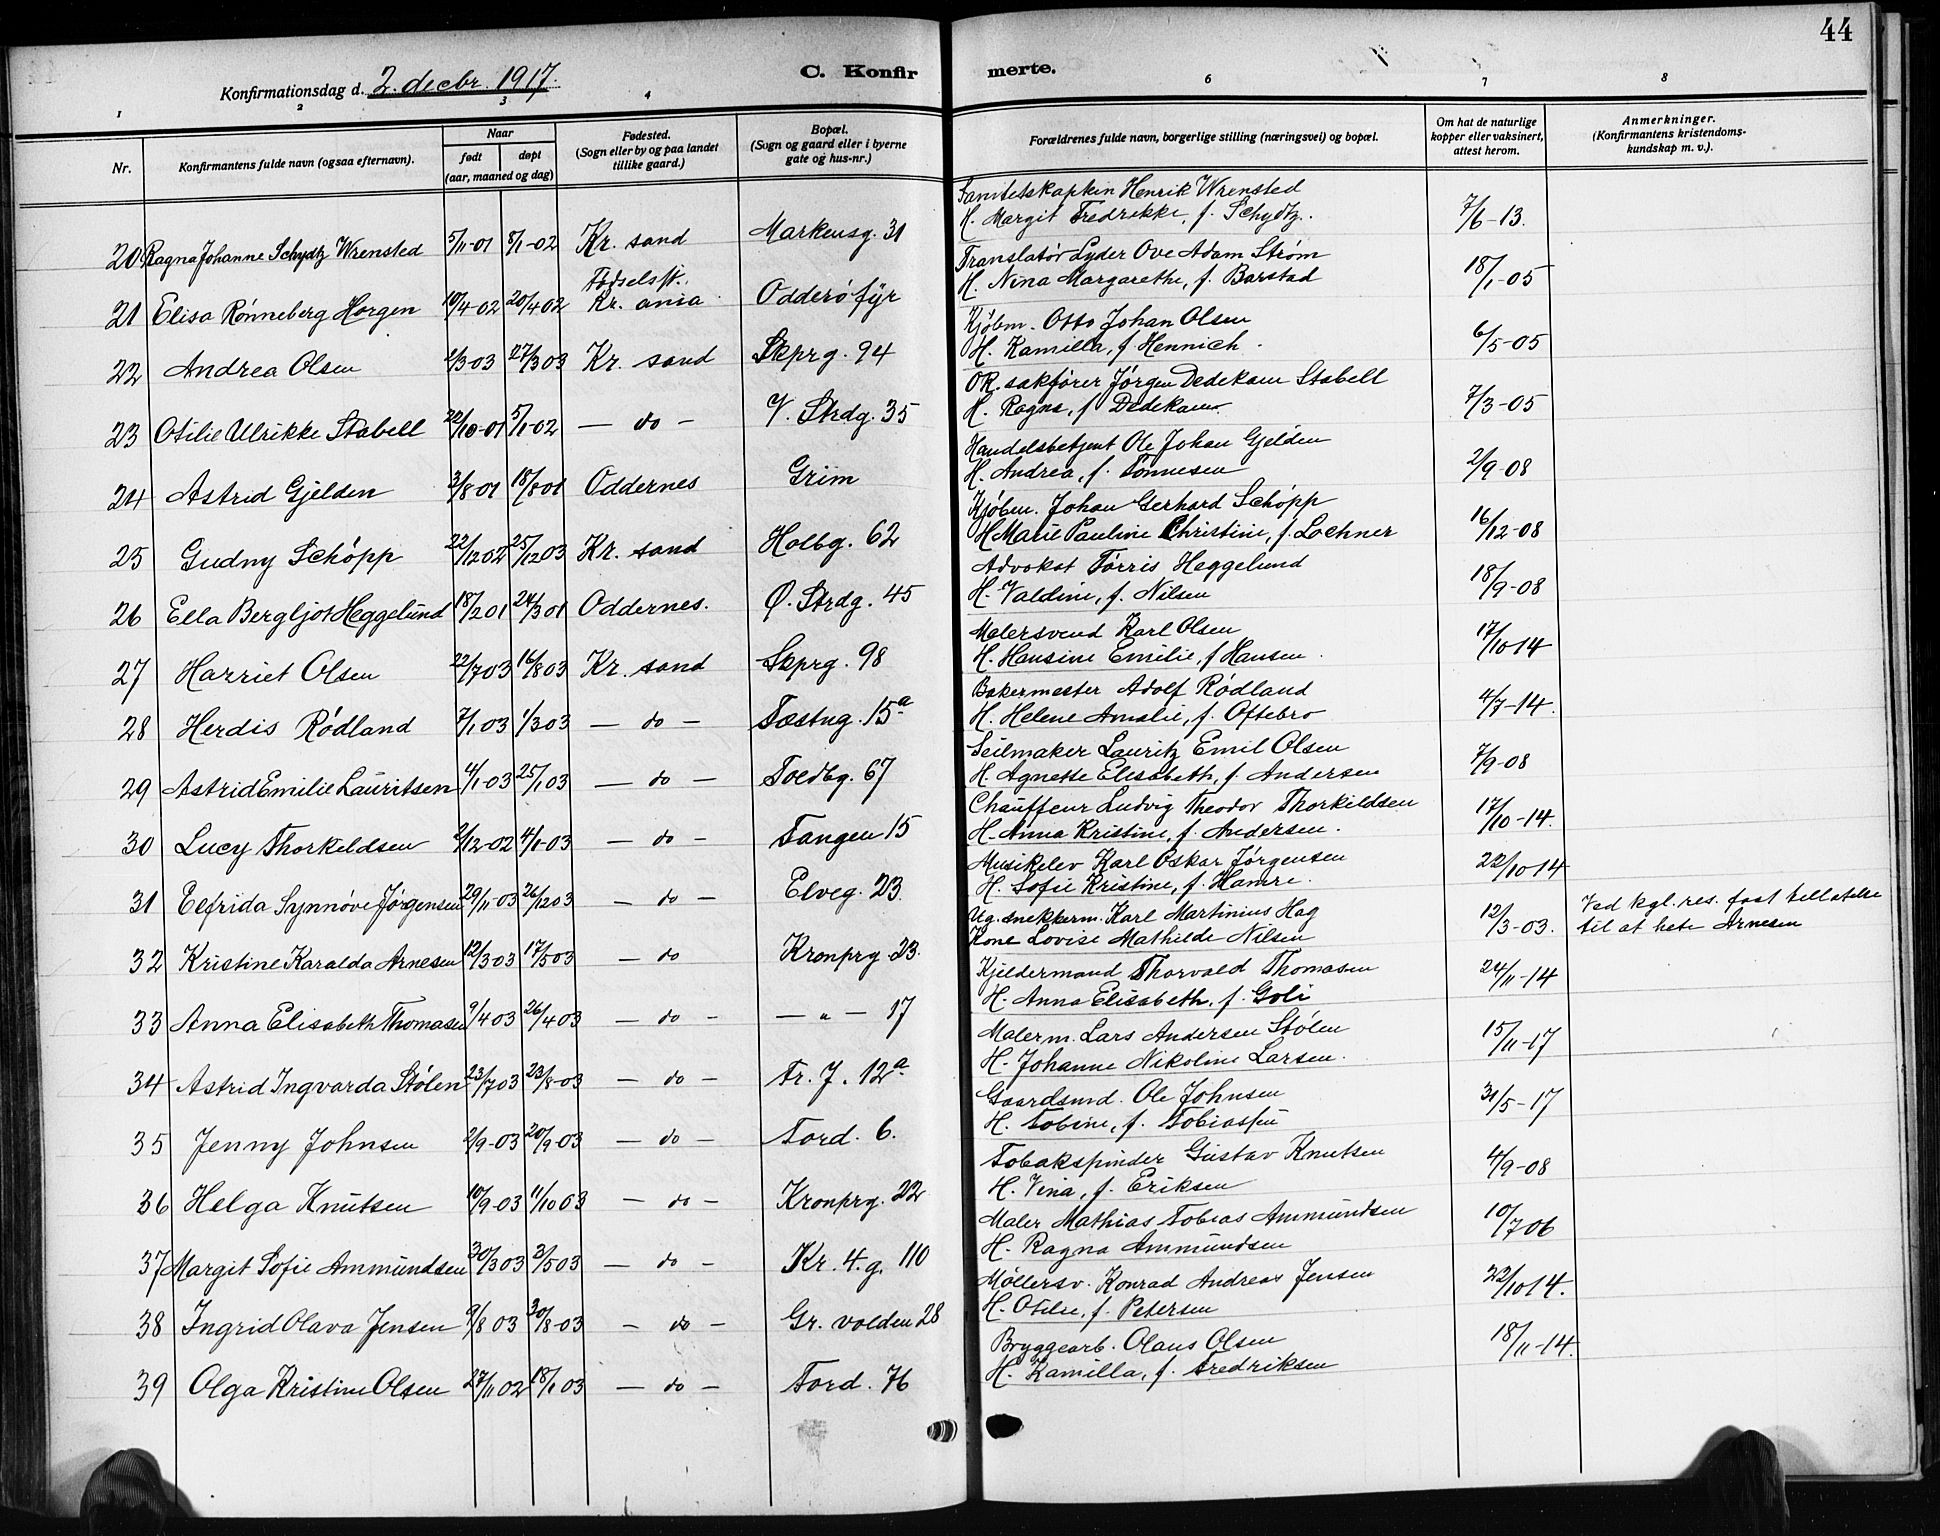 44
Konfirmationsdag d. 2. decbr. 1917.
C. Konfirmerte.
1 2 3 4 6 7 8
Nr.
Konfirmantens fulde navn (ogsaa efternavn).
Naar
født
døpt
(aar, maaned og dag)
Fødested.
(Sogn eller by og paa landet
tillike gaard.)
Bopæl.
(Sogn og gaard eller i byerne
gate og hus-nr.)
Forældrenes fulde navn, borgerlige stilling (næringsvei) og bopæl.
Om hat de naturlige
kopper eller vaksinert,
attest herom.
Anmerkninger.
(Konfirmantens kristendoms-
kundskap m. v.).
20 Ragna Johanne Schydtz Wrensted 5/11-01 5/1-02 Kr. sand Markensg. 31
Sanitetskaptein Henrik Wrensted
H. Margit Fredrikke, f. Schydtz. 7/6-13.
21 Elisa Rønneberg Horgen 10/4-02 20/4 02 Fødselsst. Kr. ania Odderø fyr
Translatør Lyder Ove Adam Strøm
H. Nina Margarethe, f. Barstad 18/1-05
22 Andrea Olsen 2/3-03 27/3 03 Kr. sand Skprg. 94
Kjøbm. Otto Johan Olsen
H. Kamilla, f. Hennich. 6/5-05
23 Otilie Ulrikke Stabell 22/10-01 5/1-02 — do — V. Strdg. 35
OR. sakfører Jørgen Dedekam Stabell
H. Ragna, f. Dedekam. 7/3-05
24 Astrid Gjelden 3/8-01 18/8 01 Oddernes Grim
Handelsbetjent Ole Johan Gjelden
H. Andrea, f. Tønnesen 2/9-08
25 Gudny Schöpp 22/12 02 25/12 03 Kr. sand Holbg. 62
Kjøbm. Johan Gerhard Schöpp
H. Marie Pauline Christine, f. Lochner 16/12-08
26 Ella Bergljot Heggelund 18/2 01 24/3 01 Oddernes. Ø. Strdg. 45
Advokat Tørris Heggelund
H. Valdine, f. Nilsen 18/9-08
27 Harriet Olsen 22/7 03 16/8 03 Kr. sand Skprg. 98
Malersvend Karl Olsen
H. Hansine Emilie, f Hansen. 17/10 14
28 Herdis Rødland 7/1 03 1/3 03 — do — Fæstng. 15a
Bakermester Adolf Rødland
H. Helene Amalie, f. Oftebro 4/7-14.
29 Astrid Emilie Lauritsen 4/1-03 25/1 03 — do — Toldbg. 67
Seilmaker Lauritz Emil Olsen
H. Agnette Elisabeth, f. Andersen 7/9-08
30 Lucy Thorkildsen 2/12-02 4/1-03 — do — Tangen 15
Chauffeur Ludvig Theodor Thorkildsen
H. Anna Kristine, f. Andersen. 17/10-14.
31 Elfrida Synnøve Jørgensen 29/11-03 26/12 03 — do — Elveg. 23.
Musikelev Karl Oskar Jørgensen
H. Sofie Kristine, f. Hamre. 22/10 14
32 Kristine Haralda Arnesen 12/3 03 17/5 03 — do Kronprg. 23.
Ug. snekkerm. Karl Martinius Hag
Kone Lovise Mathilde Nilsen 12/3-03.
Ved kgl. res. faat tillatelse
til at hete Arnesen
33 Anna Elisabeth Thomasen 9/4 03 26/4 03 — do — — „ — 17
Kjeldermand Thorvald Thomasen
H. Anna Elisabeth, f. Goli 24/11-14
34 Astrid Ingvarda Stølen 23/7 03 23/8-03 — do — Fr. J. 12a
Malerm. Lars Andersen Stølen
H. Johanne Nikoline Larsen. 15/11-17
35 Jenny Johnsen 2/9-03 20/9-03 — do — Tord. 6.
Gaardsmd. Ole Johnsen
H. Tobine, f. 31/5-17
36 Helga Knutsen 10/9-03 11/10 03 — do — Kronprg. 22
Tobakspinder Gustav Knutsen
H. Vina, f. Eriksen 4/9-08
37 Margit Sofie Ammundsen 30/3 03 3/5 03 — do — Kr. 4. g. 110
Maler Mathias Tobias Ammundsen
H. Ragna Ammundsen 10/7 06
38 Ingrid Olava Jensen 9/8 03 30/8-03 — do — Gr. volden 28
Møllersv. Konrad Andreas Jensen
H. Otilie, f. Petersen 22/10 14.
39 Olga Kristine Olsen 27/11 02 18/1 03 — do — Tord. 76
Bryggearb. Olaus Olsen
H. Kamilla, f. Fredriksen 18/11-14.